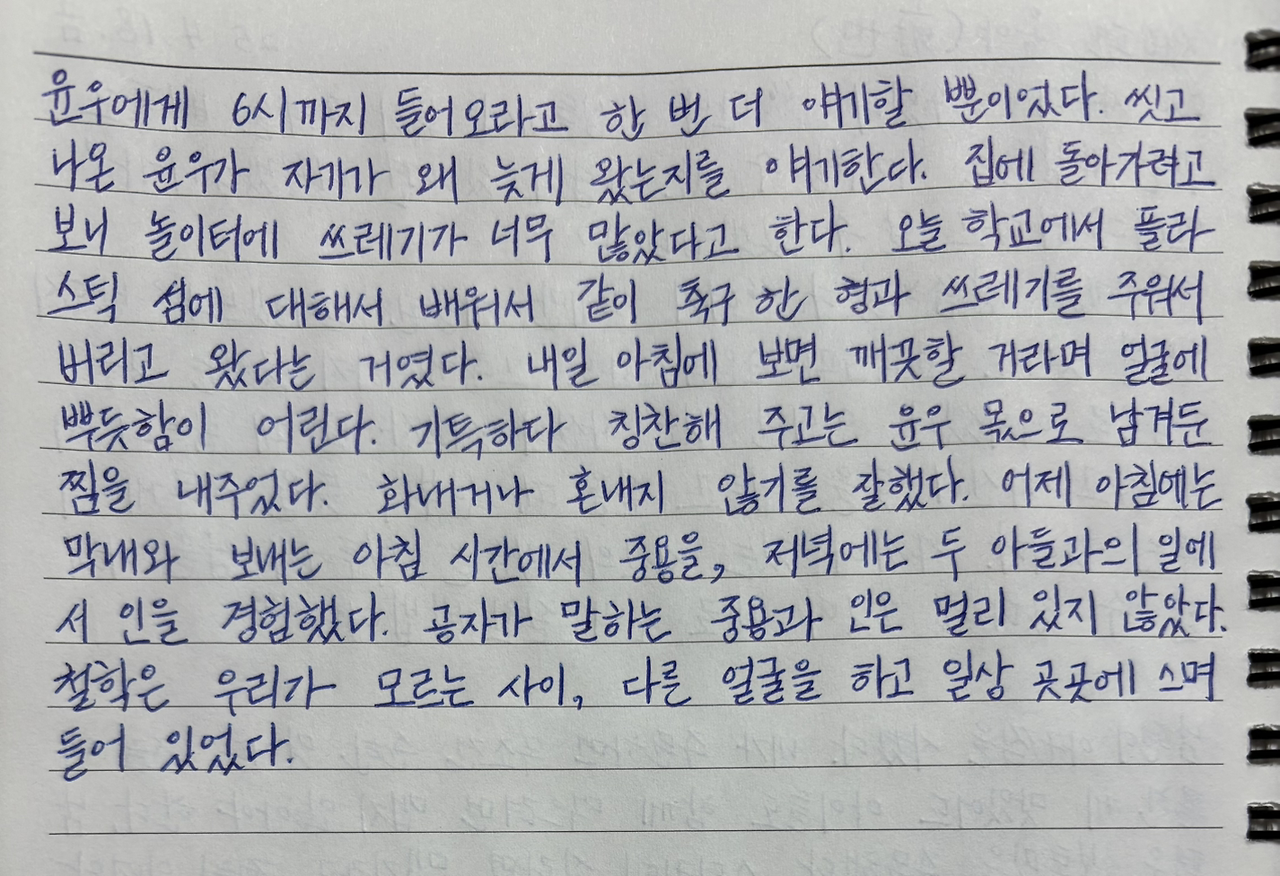 윤우에게 6시까지 들어오라고 한 번 더 얘기할 뿐이었다. 씻고
나온 윤우가 자기가 왜 늦게 왔는지를 얘기한다. 집에 돌아가려고
보니 놀이터에 쓰레기가 너무 많았다고 한다. 오늘 학교에서 플라
스틱 섬에 대해서 배워서 같이 축구 한 형과 쓰레기를 주워서
버리고 왔다는 거였다. 내일 아침에 보면 깨끗할 거라며 얼굴에
뿌듯함이 어린다. 기특하다 칭찬해 주고는 윤우 몫으로 남겨둔
찜을 내주었다. 화내거나 혼내지 않기를 잘했다. 어제 아침에는
막내와 보내는 아침 시간에서 중용을, 저녁에는 두 아들과의 일에
서 인을 경험했다. 공자가 말하는 중용과 인은 멀리 있지 않았다.
철학은 우리가 모르는 사이, 다른 얼굴을 하고 일상 곳곳에 스며
들어 있었다.